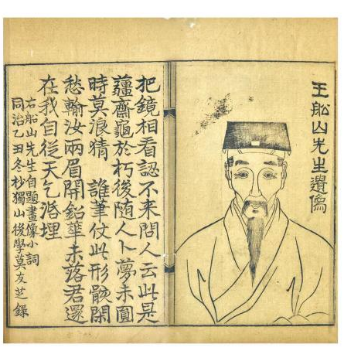 王船山先生遺像
把鏡相看認不來問人云此是
薑齋龜於朽後隨人卜夢未圓
時莫浪猜　誰筆仗此形骸閒
愁輸汝兩眉開鉛華未落君還
在我自從天乞活埋
右船山先生自題畫像小詞
同治乙丑冬杪獨山後學莫友芝錄